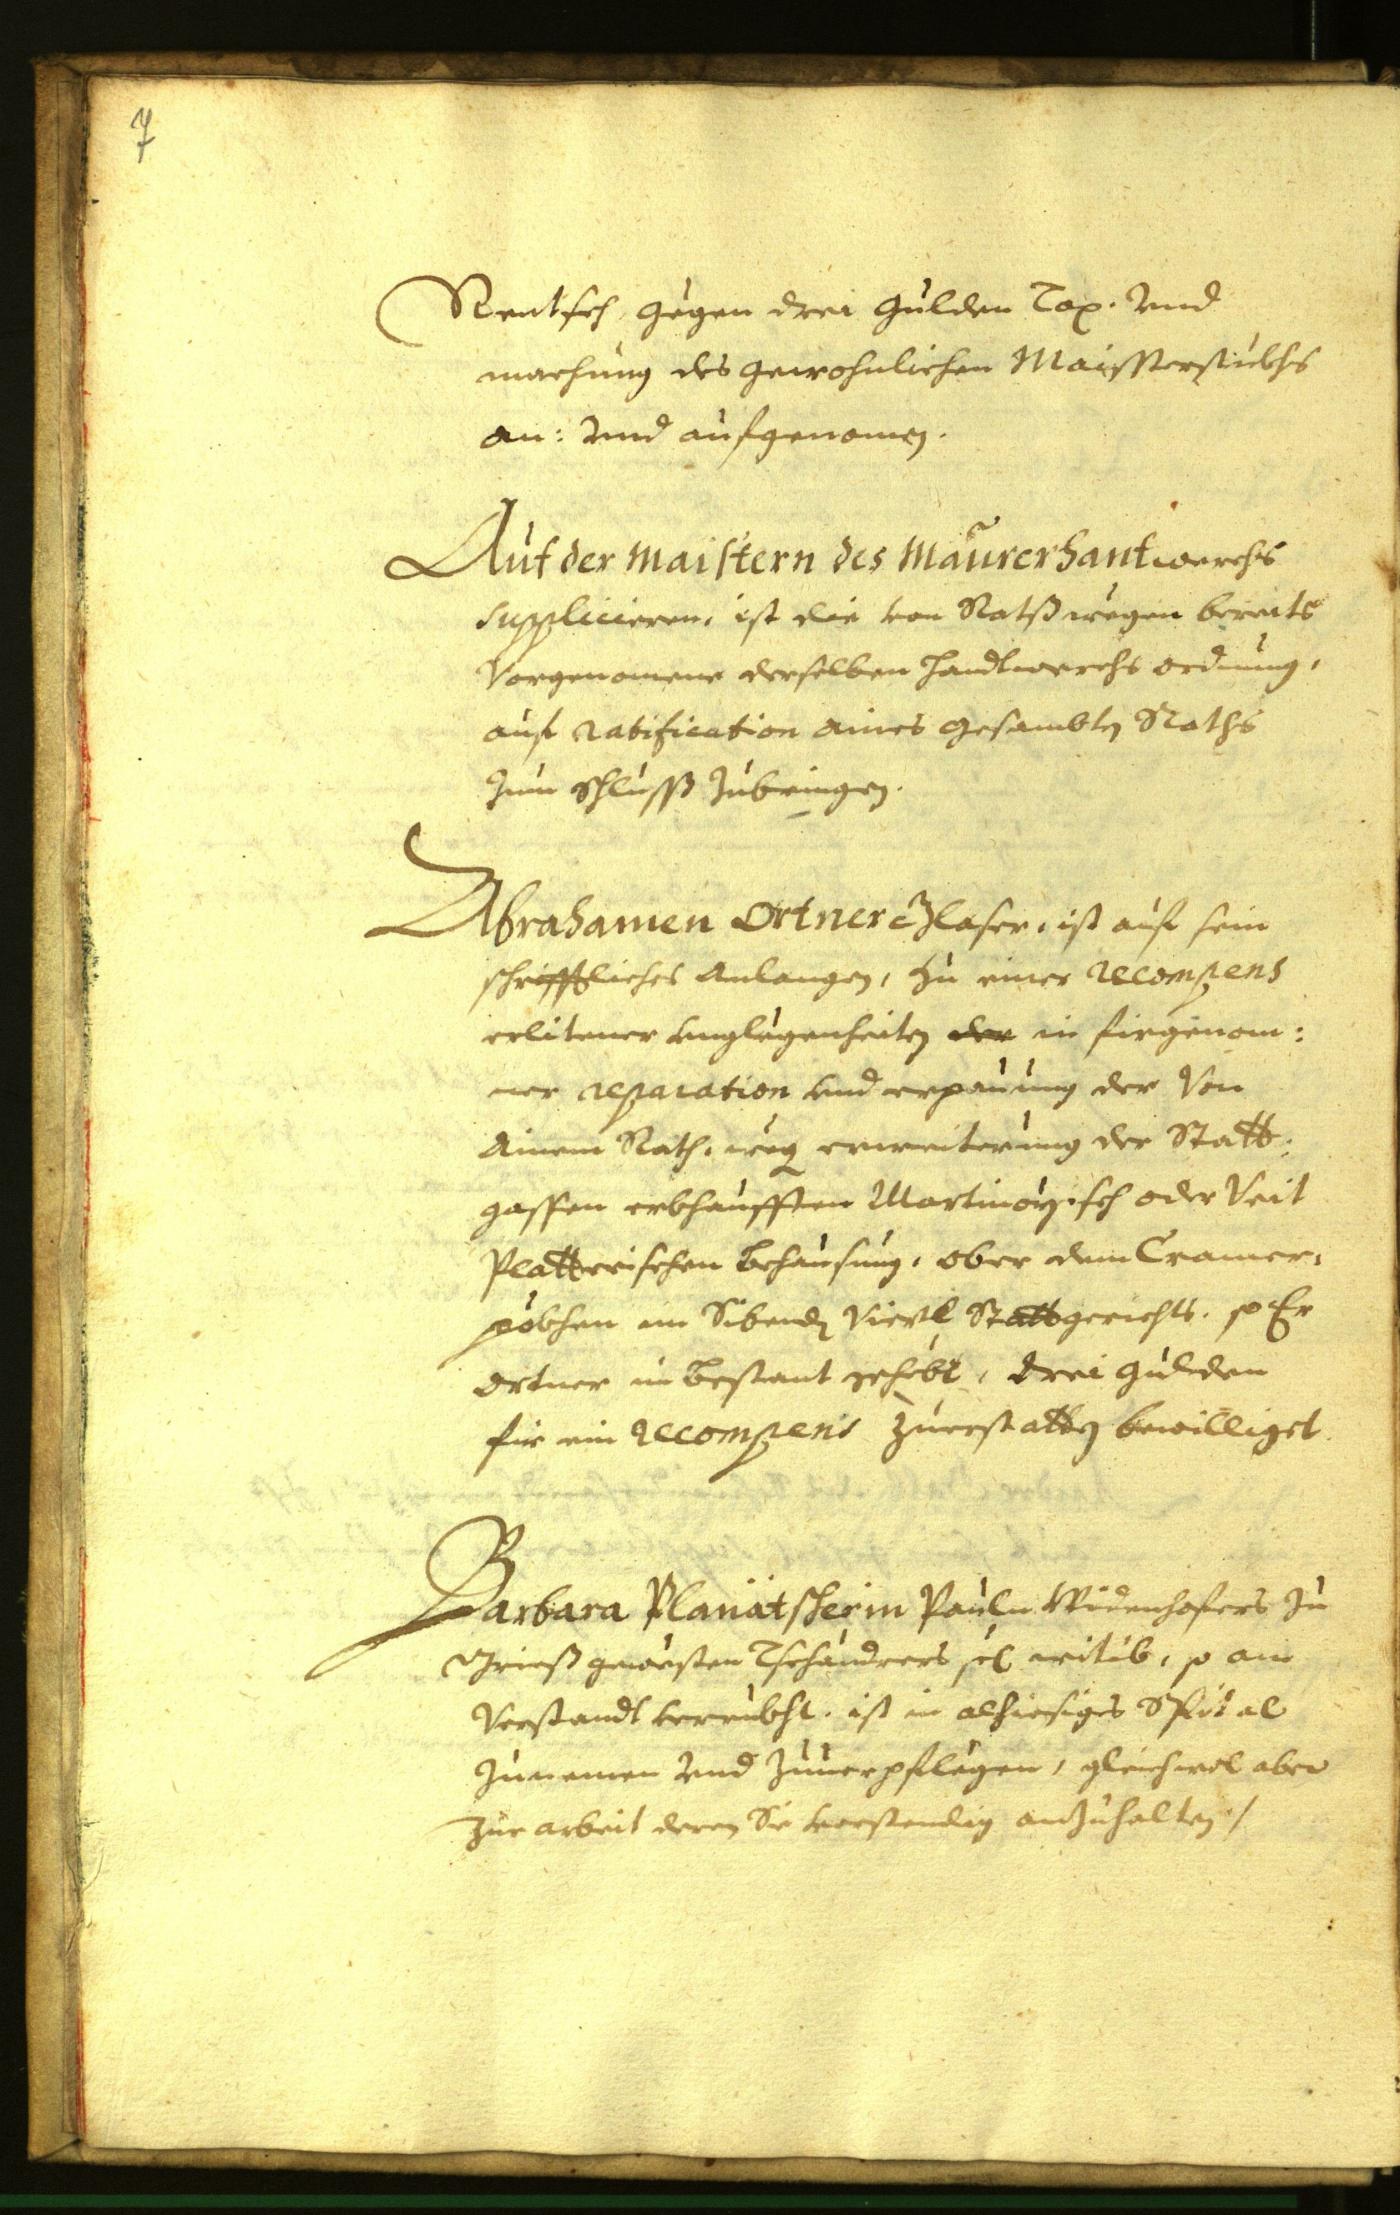 7
Rentsch, gegen drei Gulden Tax. vnd
machung des gewohnlichen Maissterstückhs
an: vnd aufgenomen.
Auf der Maistern des Maurerhantwerchs
supplicieren, ist die von Ratß wegen bereits
Vorgenomene derselben handtwerchs ordnung,
auf ratification aines gesambten Raths
zum schlusß zubringen.
Abrahamen Ortner Glaser, ist auf sein
schrifftliches Anlangen, zu einer recompens
erlitener unglegenheiten der in firgenom:
ner reparation vnd erpauung der Von
Ainem Rath, weg erweiterung der Statt:
gassen erkhaufften Martinoyisch oder Veit
Platterischen behausung, ober dem Cramer,
pökhen im Sibenden Viertl Stattgerichts. so Er
Ortner in bestant gehebt, drei gulden
fir ein recompens zuerstatten bewilliget.
Barbara Planätscherin Pauln Widenhofers zu
Grieß gewesten Tschaudrers sel. witib, so am
Verstandt verrukht. ist in alhiesiges Spital
zunemen vnd zuuerpflegen, gleichwol aber
zur arbeit deren Sie verstendig anzuhalten ./